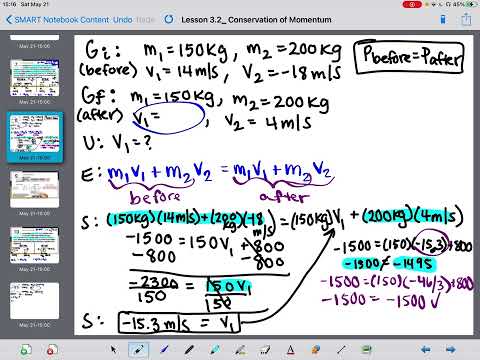 15:16 Sat May 21
45%
SMART Notebook Content Undo Lesson 3.2_ Conservation of Momentum
May 21-15:00
May 21-15:00
May 21-15:00
May 21-15:00
Gi: m₁=150kg, m₂=200kg
(before) V₁=14m/s, V₂=-18m/s
Pbefore=Pafter
Gf: m₁=150kg, m₂=200kg
(after) V₁= , V₂=4m/s
U: V₁=?
E: m₁V₁+m₂V₂ = m₁V₁+m₂V₂
before after
S: (150kg)(14m/s)+(200kg)(-18m/s)=(150kg)V₁+(200kg)(4m/s)
-1500 = 150V₁ +800
-800 -800
-2300 = 150V₁
150 150
S: -15.3m/s = V₁
-1500=(150)(-15.3)+800
-1500≠-1495
-1500=(150)(-46/3)+800
-1500 = -1500 ✓